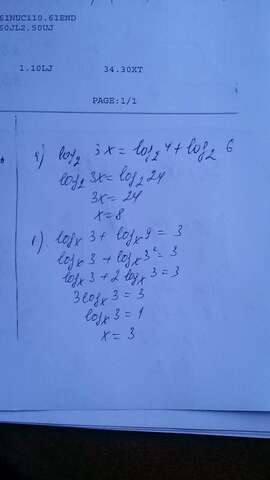 61NUC110.61END
50JL2.50UJ
1.10LJ 34.30XT
PAGE:1/1
log₂ 3x = log₂ 4 + log₂ 6
log₂ 3x = log₂ 24
3x = 24
x = 8
logₓ 3 + logₓ 9 = 3
logₓ 3 + logₓ 3² = 3
logₓ 3 + 2 logₓ 3 = 3
3 logₓ 3 = 3
logₓ 3 = 1
x = 3